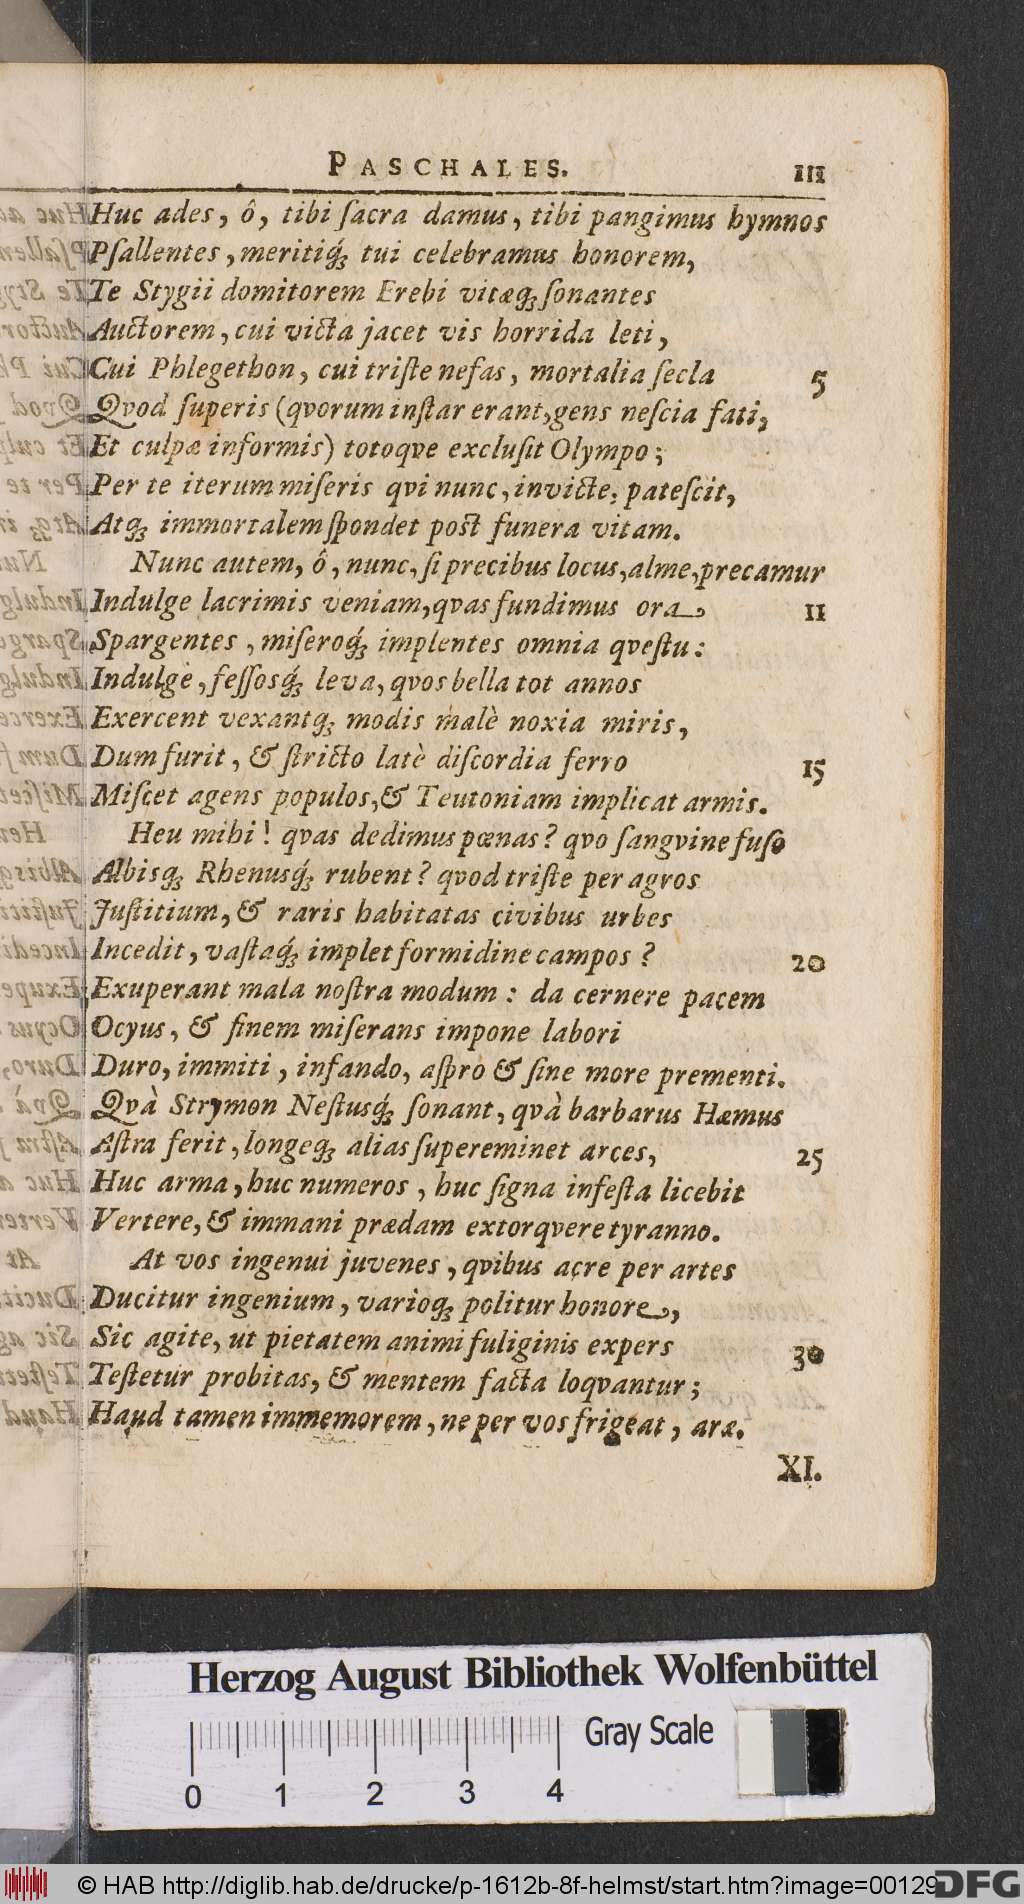 PASCHALES. III
Huc ades, ô, tibi ſacra damus, tibi pangimus hymnos
Pſallentes, meritiq́ꝫ tui celebramus honorem,
Te Stygii domitorem Erebi vitæqꝫ ſonantes
Auctorem, cui victa jacet vis horrida leti,
Cui Phlegethon, cui triſte nefas, mortalia ſecla 5
Qvod ſuperis (qvorum inſtar erant, gens neſcia fati,
Et culpæ informis) totoqve excluſit Olympo;
Per te iterum miſeris qvi nunc, invicte, pateſcit,
Atqꝫ immortalem ſpondet poſt funera vitam.
Nunc autem, ô, nunc, ſi precibus locus, alme, precamur
Indulge lacrimis veniam, qvas fundimus ora 11
Spargentes, miſeroq́ꝫ implentes omnia qveſtu:
Indulge, feſſosq́ꝫ leva, qvos bella tot annos
Exercent vexantqꝫ modis malè noxia miris,
Dum furit, & ſtricto latè diſcordia ferro 15
Miſcet agens populos, & Teutoniam implicat armis.
Heu mihi! qvas dedimus pœnas? qvo ſangvine fuſo
Albisqꝫ Rhenusq́ꝫ rubent? qvod triſte per agros
Juſtitium, & raris habitatas civibus urbes
Incedit, vaſtaq́ꝫ implet formidine campos? 20
Exuperant mala noſtra modum: da cernere pacem
Ocyus, & finem miſerans impone labori
Duro, immiti, infando, aſpro & ſine more prementi.
Qvà Strymon Neſtusq́ꝫ ſonant, qvà barbarus Hæmus
Aſtra ferit, longeqꝫ alias ſupereminet arces, 25
Huc arma, huc numeros, huc ſigna infeſta licebit
Vertere, & immani prædam extorqvere tyranno.
At vos ingenui juvenes, qvibus acre per artes
Ducitur ingenium, varioqꝫ politur honore,
Sic agite, ut pietatem animi fuliginis expers 30
Teſtetur probitas, & mentem facta loqvantur;
Haud tamen immemorem, ne per vos frigeat, aræ.
XI.
Herzog August Bibliothek Wolfenbüttel
Gray Scale
0 1 2 3 4
© HAB http://diglib.hab.de/drucke/p-1612b-8f-helmst/start.htm?image=00129
DFG